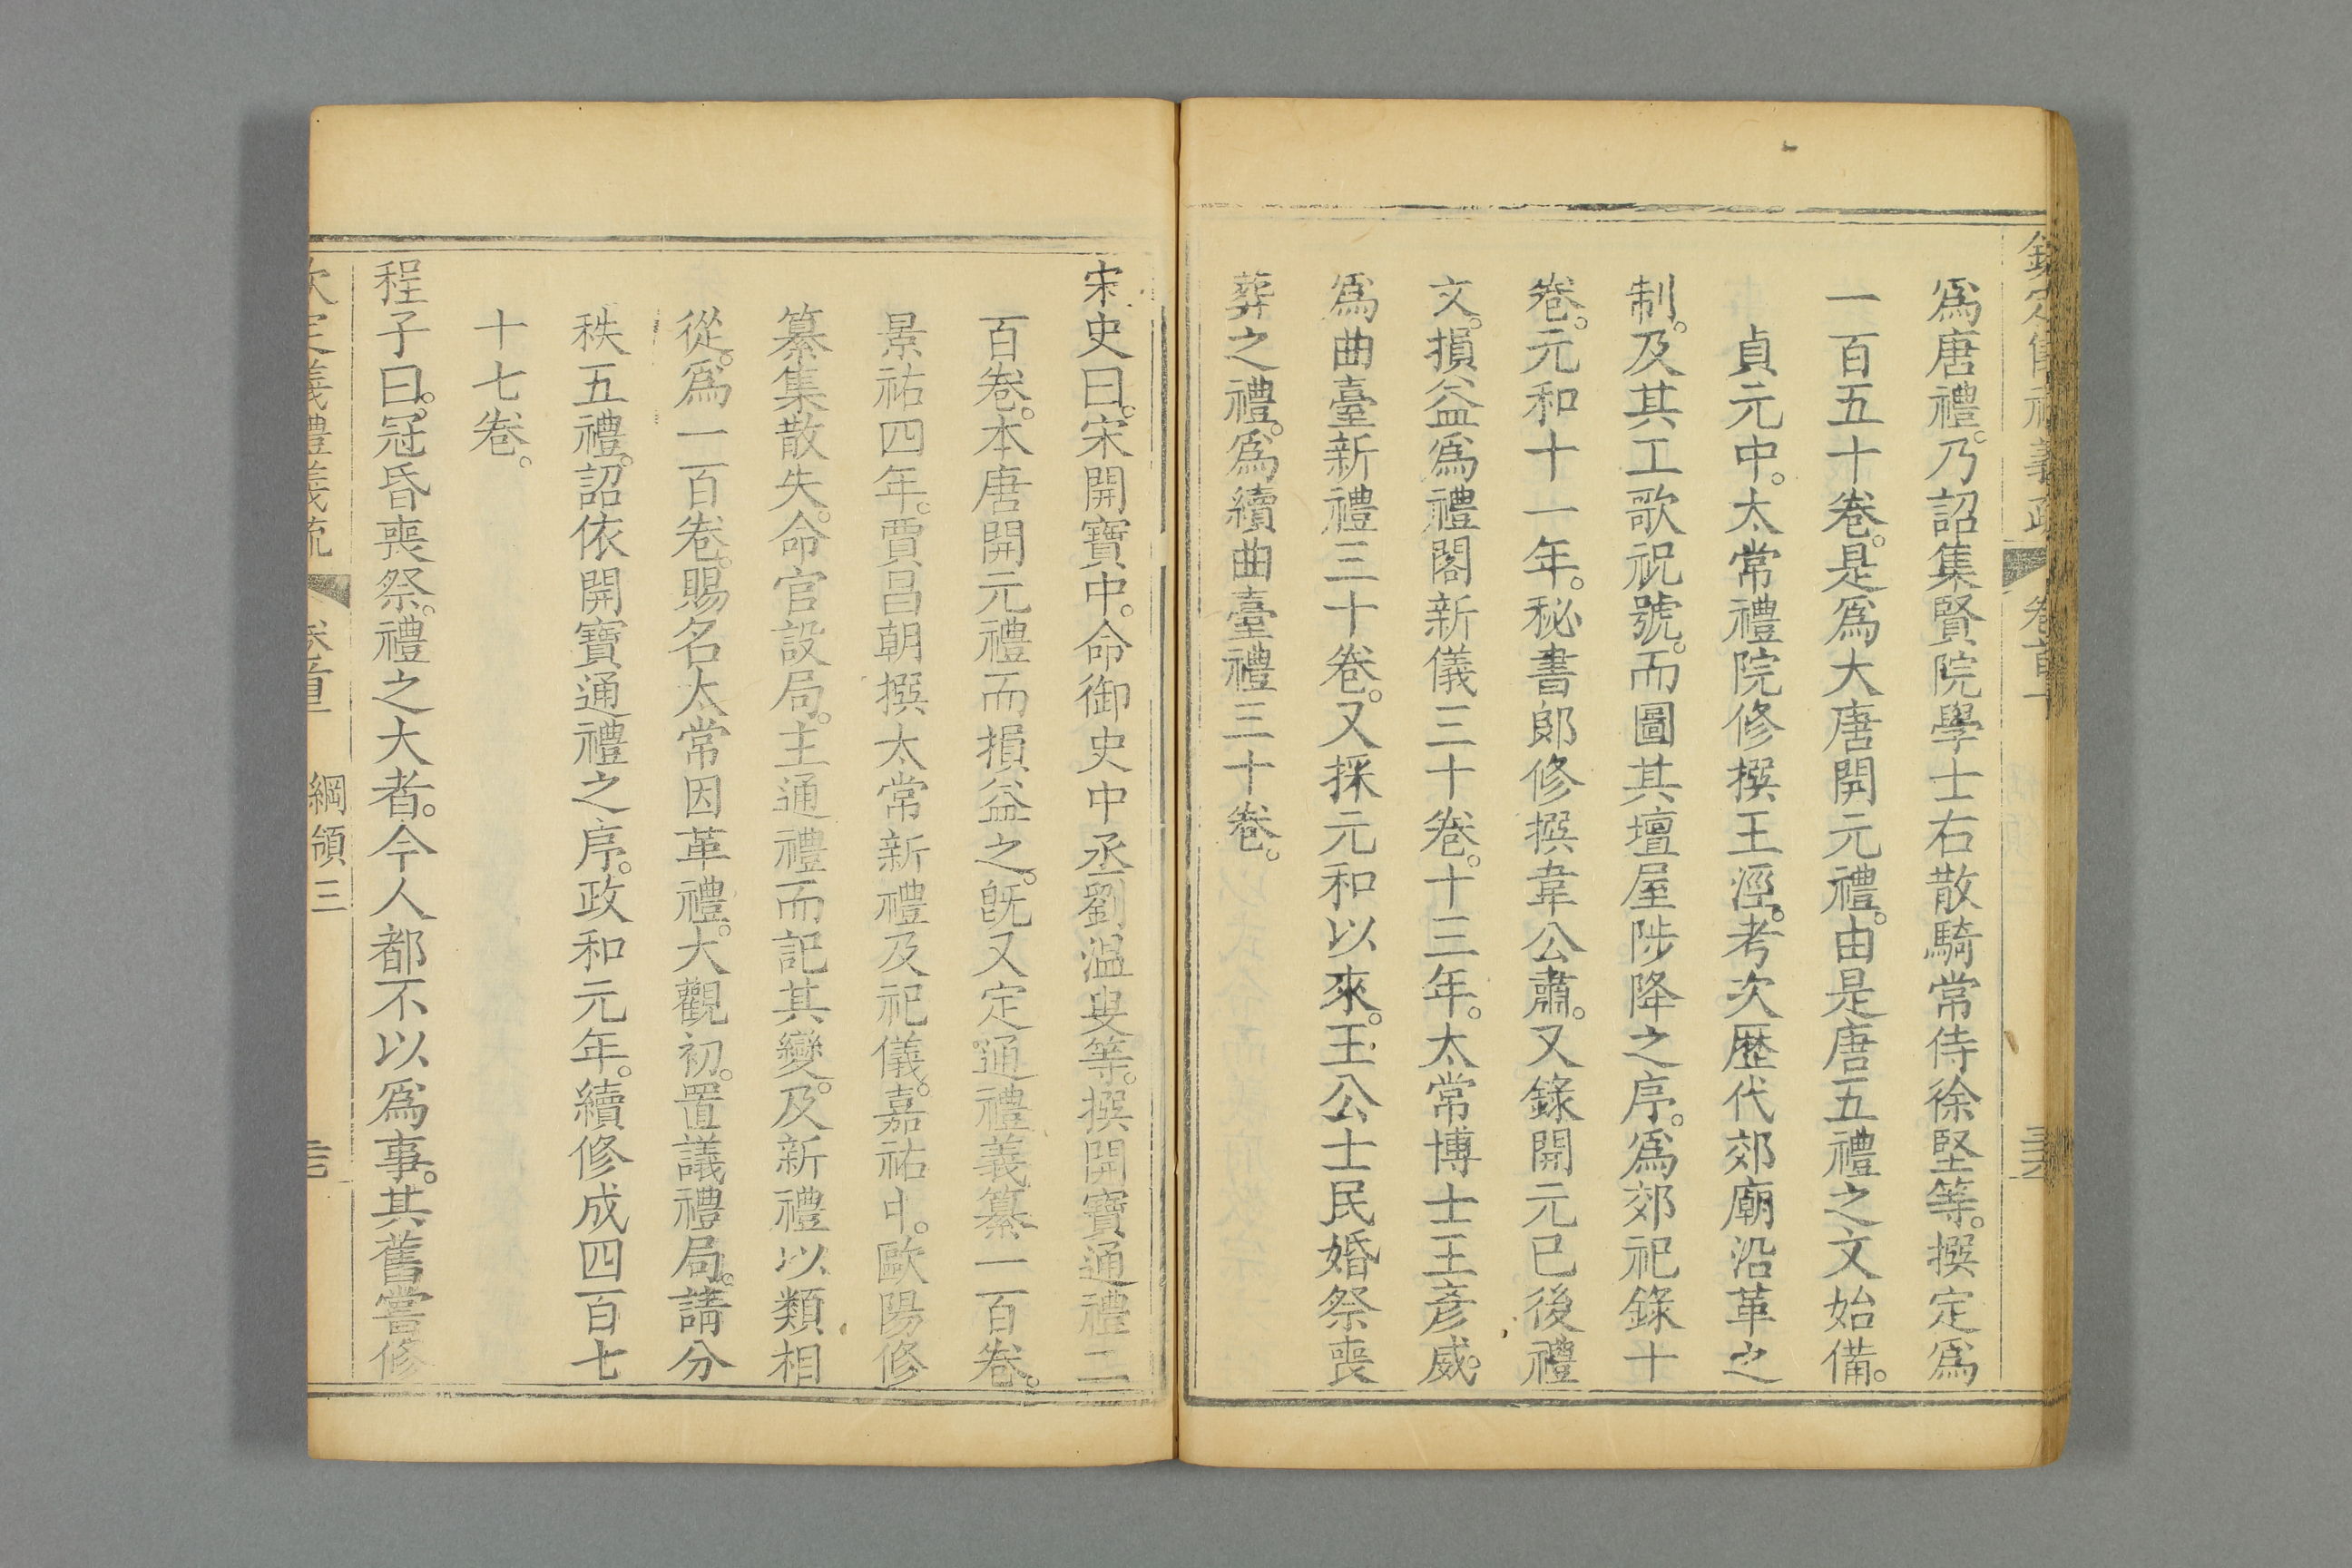 爲唐禮。乃詔集賢院學士右散騎常侍徐堅等。撰定爲
一百五十卷。是爲大唐開元禮。由是唐五禮之文始備。
貞元中。太常禮院修撰王涇。考次歷代郊廟沿革之
制。及其工歌祝號。而圖其壇屋陟降之序。爲郊祀錄十
卷。元和十一年。秘書郎修撰韋公肅。又錄開元已後禮
文。損益爲禮閣新儀三十卷。十三年。太常博士王彥威。
爲曲臺新禮三十卷。又採元和以來。王公士民婚祭喪
葬之禮。爲續曲臺禮三十卷。
宋史曰。宋開寶中。命御史中丞劉溫叟等。撰開寶通禮二
百卷。本唐開元禮而損益之。旣又定通禮義纂一百卷。
景祐四年。賈昌朝撰太常新禮及祀儀。嘉祐中。歐陽修
纂集散失。命官設局。主通禮而記其變。及新禮以類相
從。爲一百卷。賜名太常因革禮。大觀初。置議禮局。請分
秩五禮。詔依開寶通禮之序。政和元年。續修成四百七
十七卷。
程子曰。冠昏喪祭。禮之大者。今人都不以爲事。其舊嘗修
義禮義疏 卷首 綱領三